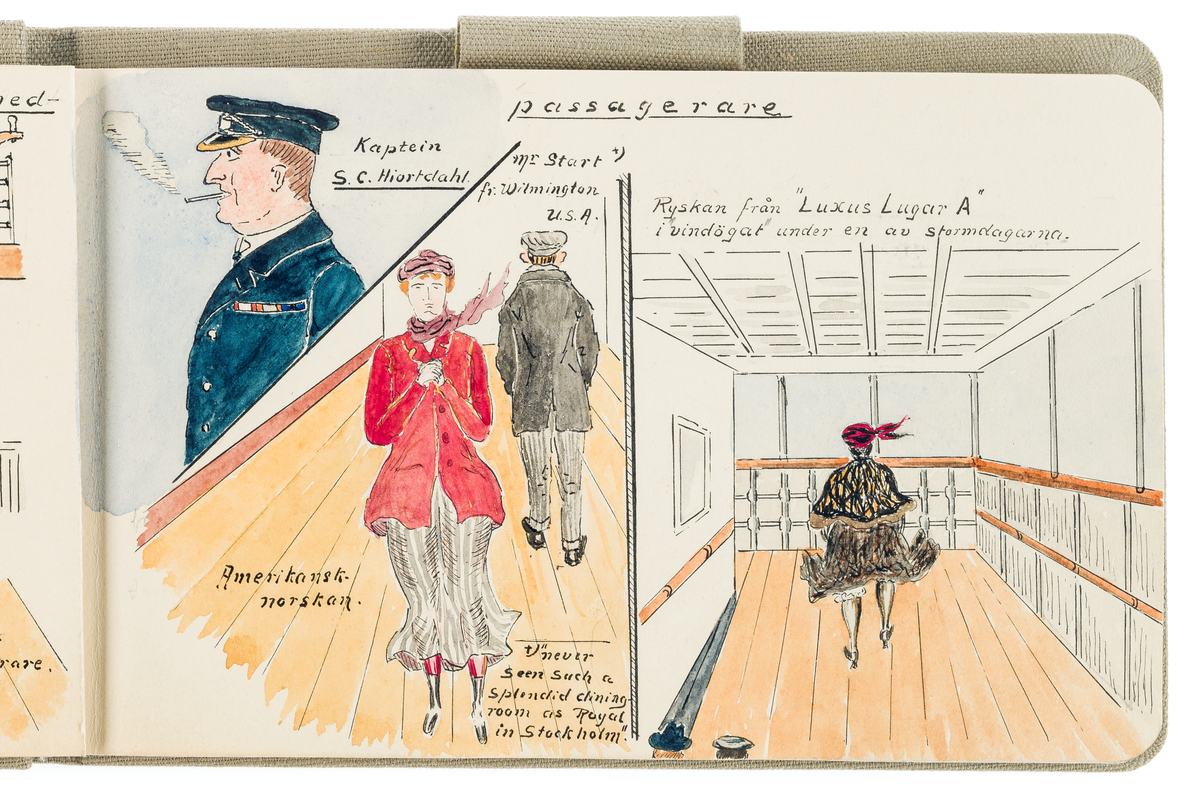 ned-
passagerare
Kaptein
S. C. Hiortdahl.
Mr Start +)
fr. Wilmington
U.S.A.
Ryskan från "Luxus Lugar A"
i "vindögat" under en av stormdagarna.
Amerikansk-
norskan.
+) "never
seen such a
splendid dining-
room as Royal
in Stockholm".
rare.